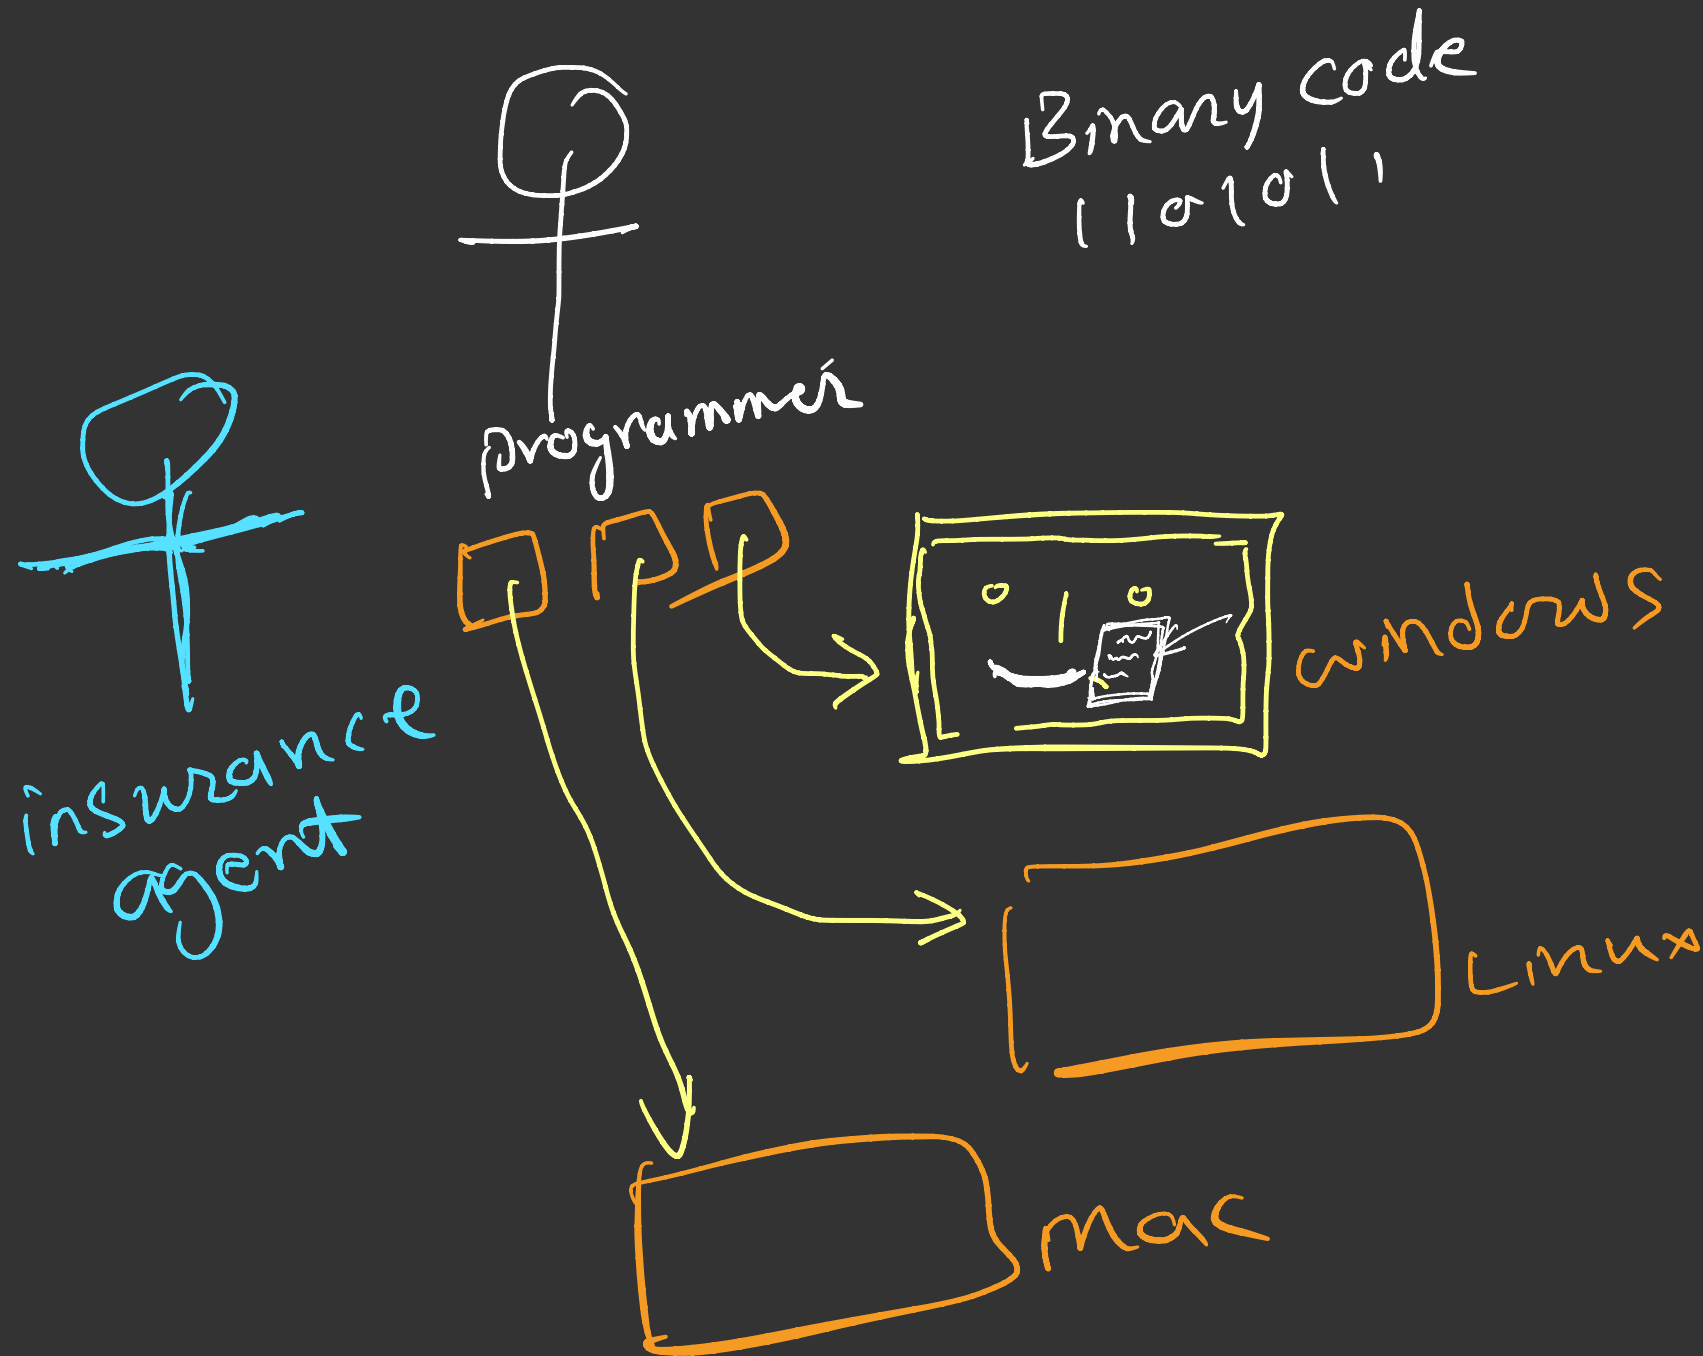 Binary code
1101011
programmer
insurance
agent
windows
Linux
Mac